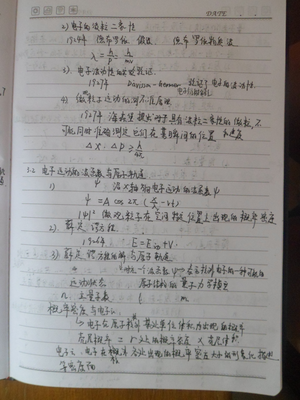 DATE
2) 电子的波粒二象性
1924 德布罗依 假设 德布罗依关系式
λ = h/p = h/mv
3). 电子波动性的实验验证
1927年 Davisson-Germer 验证了电子的波动性.
电子衍射
4) 微粒子运动的测不准原理
1927年 海森堡提出对于具有波粒二象性的微粒, 不
可能同时准确测定它们在某瞬间的位置和速度
Δx · Δp ≥
2.2 电子运动的波函数与原子轨道
1) ψ 沿 x 轴 电子运动的波函数 ψ
ψ = A cos 2π (x/λ - νt)
|ψ|² 微观粒子在空间某位置上出现的概率密度
2) 薛定谔方程
1926年 E = E + V.
3) 薛定谔方程的解与原子轨道
一个波函数 ψ 电子的一种可能的
运动状态 原子结构的量子力学模型
n. 主量子数 l m
概率密度与电子云.
→ 电子在原子核外某处单位体积内出现的概率
概率密度 ×
电子云: 电子在核外各处出现的概率密度大小的形象化描述